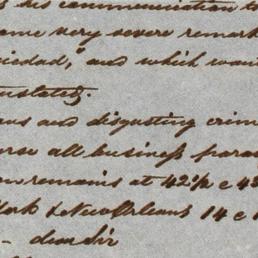 his communication to
some very severe remark
iedad," and which wan
and disgusting crim
all business para
remains at 42½ e 43
York & New Orleans 14 e 1
- dear Sir